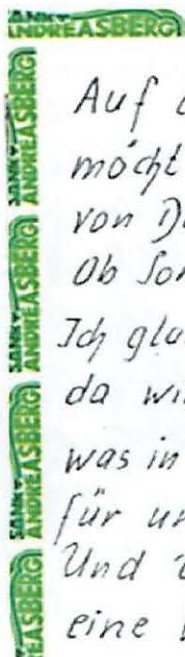 SANKT ANDREASBERG
SANKT ANDREASBERG
SANKT ANDREASBERG
SANKT ANDREASBERG
SANKT ANDREASBERG
EASBERG
Auf
möcht
von
Ob
Ich
da
was in
für
Und
eine